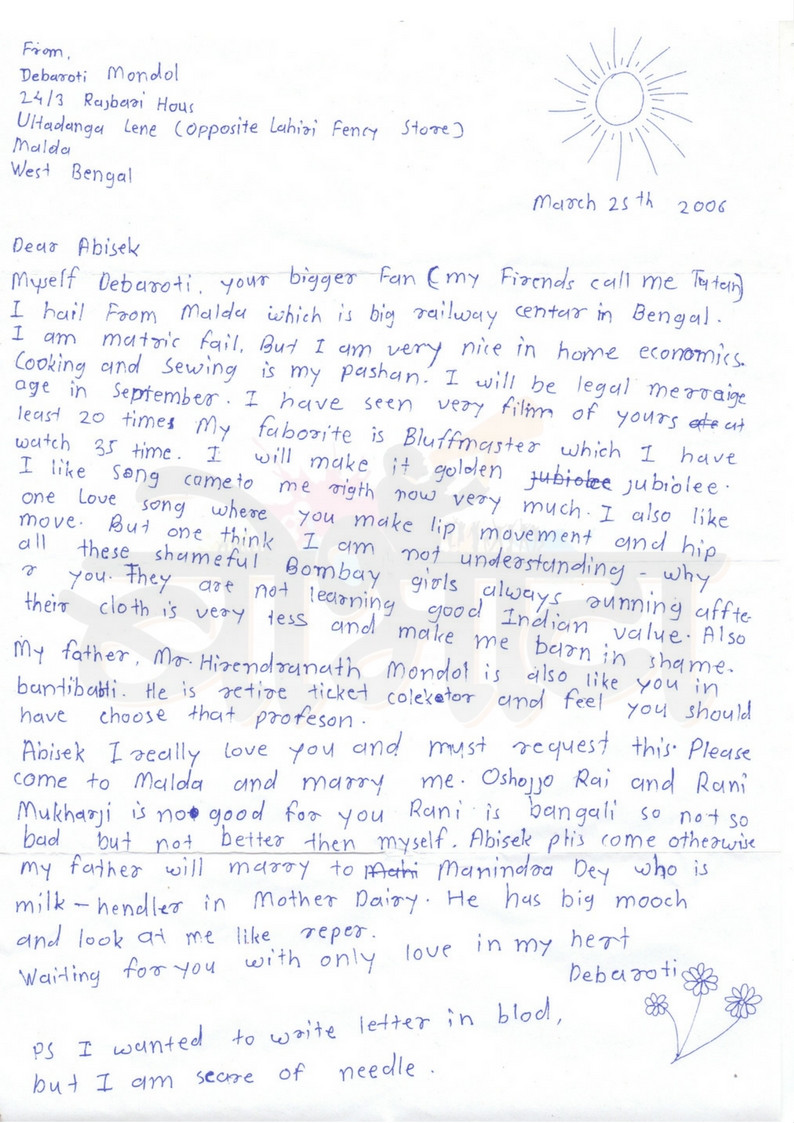 From,
Debaroti Mondol
24/3 Rajbari Hous
Ultadanga Lene (Opposite Lahiri Fency Store)
Malda
West Bengal
March 25th 2006
Dear Abisek
Myself Debaroti, your bigger Fan (my Firends call me Tutan)
I hail From Malda which is big railway centar in Bengal.
I am matric fail. But I am very nice in home economics.
Cooking and Sewing is my pashan. I will be legal merraige
age in September. I have seen very filim of yours at
least 20 times My faborite is Bluffmaster which I have
watch 35 time. I will make it golden jubiolee.
I like song cometo me rigth now very much. I also like
one Love song where you make lip movement and hip
move. But one think I am not understanding - why
all these shameful Bombay girls always running affte-
r you. They are not learning good Indian value. Also
their cloth is very less and make me barn in shame.
My father, Mr. Hirendranath Mondol is also like you in
bantibabli. He is retire ticket colekator and feel you should
have choose that profeson.
Abisek I really love you and must request this. Please
come to Malda and marry me. Oshojjo Rai and Rani
Mukharji is no good for you Rani is bangali so not so
bad but not better then myself. Abisek plis come otherwise
my father will marry to Manindra Dey who is
milk-hendler in Mother Dairy. He has big mooch
and look at me like reper.
Waiting for you with only love in my hert
Debaroti
PS I wanted to write letter in blod,
but I am scare of needle.
चौपाल